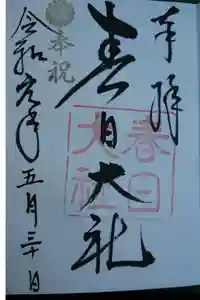 奉拝
春日大社
春日大社
奉祝
令和元年五月三十日